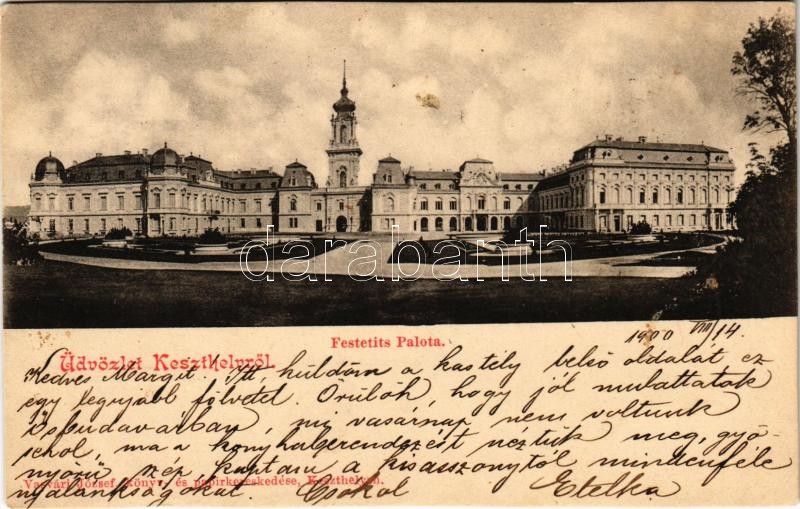 darabanth
Festetits Palota.
1900 VIII/14.
Üdvözlet Keszthelyről.
Kedves Margit! Itt, küldöm a kastély belső oldalát ez
egy legujabb fölvétel. Örülök, hogy jól mulattatok
Ősbudavárban, mi vasárnap nem voltunk
sehol, ma a konyhaberendezést néztük meg, gyö-
nyörű ez, kaptam a kisasszonytól mindenféle
nyalánkságokat. Csókol Etelka
Vasvári József, könyv- és papirkereskedése, Keszthelyen.